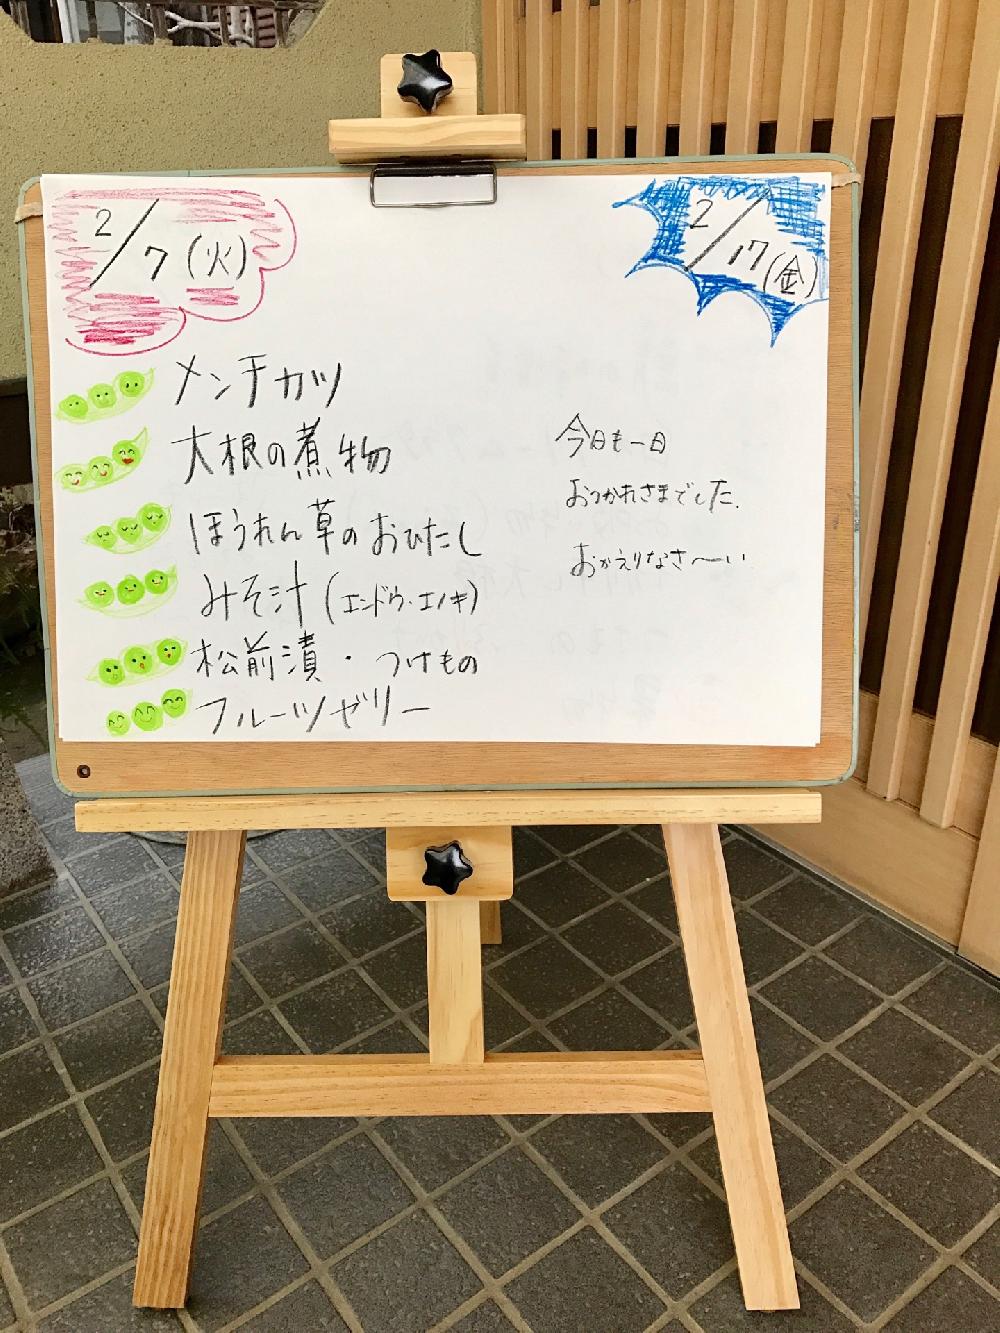 2/7(火)
メンチカツ
大根の煮物
ほうれん草のおひたし
みそ汁(エンドウ・エノキ)
松前漬・つけもの
フルーツゼリー
2/17(金)
今日も一日
おつかれさまでした.
おかえりなさ〜い.